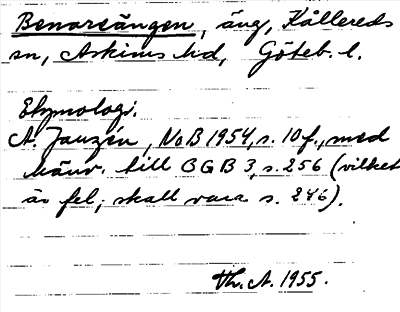 Benarsängen, äng, Kållereds
sn, Askims hd, Göteb. l.
Etymologi.
A. Janzén, NoB 1954, s. 10 f., med
hänv. till OGB 3, s. 256 (vilket
är fel; skall vara s. 246).
Th. A. 1955.